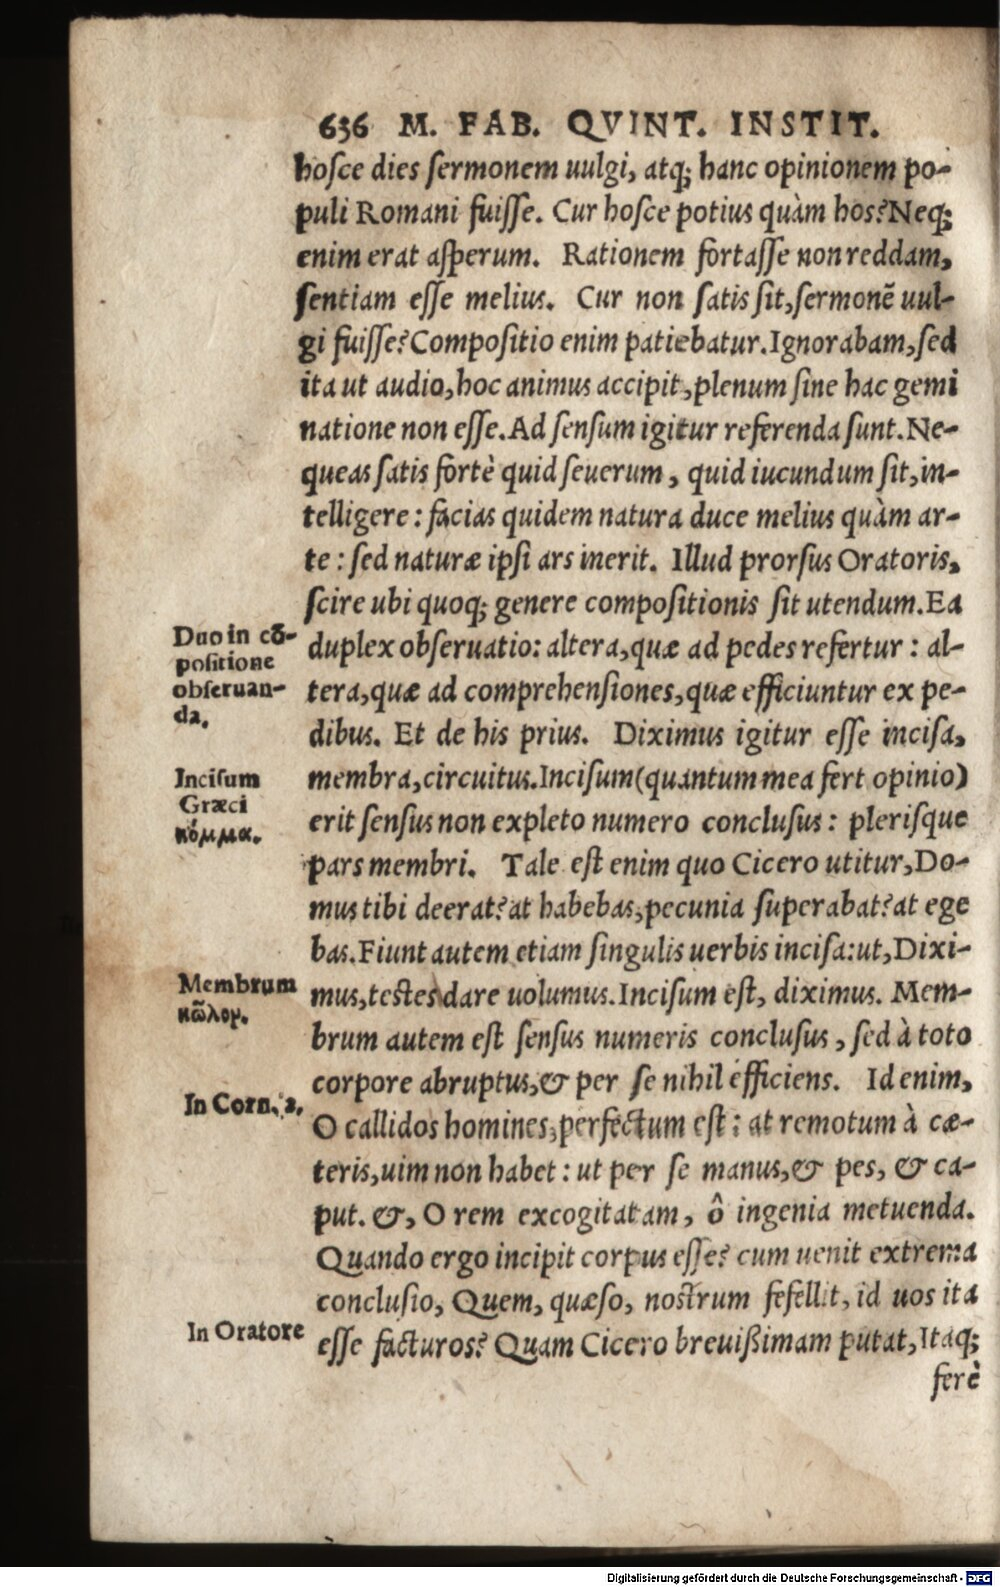 636 M. FAB. QVINT. INSTIT.
hosce dies sermonem uulgi, atq; hanc opinionem po-
puli Romani fuisse. Cur hosce potius quàm hos? Neq;
enim erat asperum. Rationem fortasse non reddam,
sentiam esse melius. Cur non satis sit, sermonē uul-
gi fuisse? Compositio enim patiebatur. Ignorabam, sed
ita ut audio, hoc animus accipit, plenum sine hac gemi
natione non esse. Ad sensum igitur referenda sunt. Ne-
queas satis fortè quid seuerum, quid iucundum sit, in-
telligere: facias quidem natura duce melius quàm ar-
te: sed naturæ ipsi ars inerit. Illud prorsus Oratoris,
scire ubi quoq; genere compositionis sit utendum. Ea
Duo in cō-
positione
obseruan-
da.
duplex obseruatio: altera, quæ ad pedes refertur: al-
tera, quæ ad comprehensiones, quæ efficiuntur ex pe-
dibus. Et de his prius. Diximus igitur esse incisa,
Incisum
Græci
κόμμα.
membra, circuitus. Incisum (quantum mea fert opinio)
erit sensus non expleto numero conclusus: plerisque
pars membri. Tale est enim quo Cicero utitur, Do-
mus tibi deerat? at habebas, pecunia superabat? at ege
bas. Fiunt autem etiam singulis uerbis incisa: ut, Dixi-
Membrum
κῶλον.
mus, testes dare uolumus. Incisum est, diximus. Mem-
brum autem est sensus numeris conclusus, sed à toto
corpore abruptus, & per se nihil efficiens. Id enim,
In Corn. 2.
O callidos homines, perfectum est: at remotum à cæ-
teris, uim non habet: ut per se manus, & pes, & ca-
put. &, O rem excogitatam, ô ingenia metuenda.
Quando ergo incipit corpus esse? cum uenit extrema
conclusio, Quem, quæso, nostrum fefellit, id uos ita
In Oratore
esse facturos? Quam Cicero breuißimam putat, Itaq;
ferè
Digitalisierung gefördert durch die Deutsche Forschungsgemeinschaft - DFG